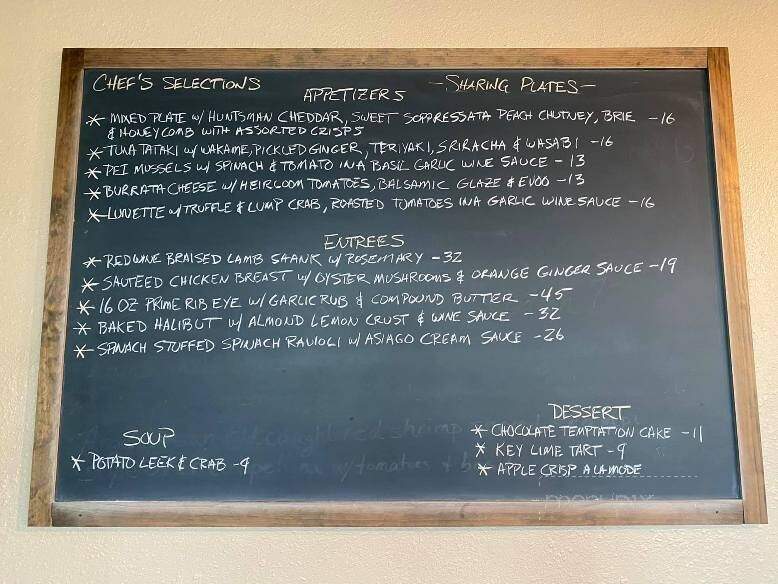 CHEF'S SELECTIONS
-SHARING PLATES-
APPETIZERS
* MIXED PLATE W/ HUNTSMAN CHEDDAR, SWEET SOPPRESSATA PEACH CHUTNEY, BRIE -16
& HONEYCOMB WITH ASSORTED CRISPS
* TUNA TATAKI W/ WAKAME, PICKLED GINGER, TERIYAKI, SRIRACHA & WASABI -16
* PEI MUSSELS W/ SPINACH & TOMATO IN A BASIL GARLIC WINE SAUCE -13
* BURRATA CHEESE W/ HEIRLOOM TOMATOES, BALSAMIC GLAZE & EVOO -13
* LUNETTE W/ TRUFFLE & LUMP CRAB, ROASTED TOMATOES IN A GARLIC WINE SAUCE -16
ENTREES
* RED WINE BRAISED LAMB SHANK W/ ROSEMARY -32
* SAUTEED CHICKEN BREAST W/ OYSTER MUSHROOMS & ORANGE GINGER SAUCE -19
* 16 OZ PRIME RIB EYE W/ GARLIC RUB & COMPOUND BUTTER -45
* BAKED HALIBUT W/ ALMOND LEMON CRUST & WINE SAUCE -32
* SPINACH STUFFED SPINACH RAVIOLI W/ ASIAGO CREAM SAUCE -26
SOUP
* POTATO LEEK & CRAB -9
DESSERT
* CHOCOLATE TEMPTATION CAKE -11
* KEY LIME TART -9
* APPLE CRISP A LA MODE
shrimp
w/ tomatoes &
menupix